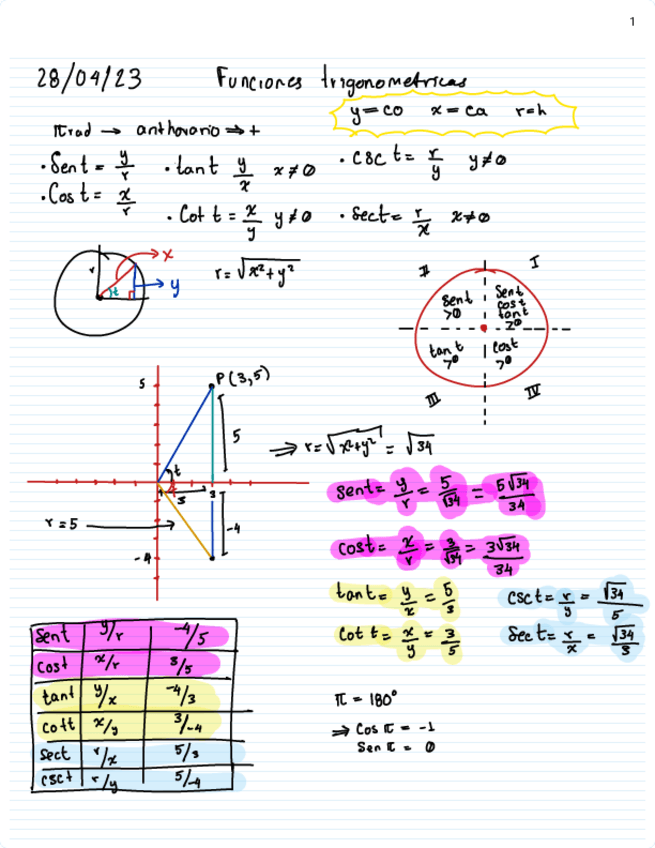 1
28/04/23 Funciones trigonometricas
y=co x=ca r=h
πrad → antihorario ⇒ +
• Sen t = y/r • tan t y/x x≠0 • csc t = r/y y≠0
• Cos t = x/r
• Cot t = x/y y≠0 • Sec t = r/x x≠0
r x t y
r = √x²+y²
II I
Sen t >0 Sen t cos t tan t >0
tan t >0 cos t >0
III IV
5 P(3,5)
5
t
⇒ r = √x²+y² = √34
3 3
r = 5 -4
-4
Sen t = y/r = 5/√34 = 5√34/34
Cos t = x/r = 3/√34 = 3√34/34
tan t = y/x = 5/3 Csc t = r/y = √34/5
Cot t = x/y = 3/5 Sec t = r/x = √34/3
Sen t y/r -4/5
Cos t x/r 3/5
tan t y/x -4/3
Cot t x/y 3/-4
Sec t r/x 5/3
CSC t r/y 5/-4
π = 180°
⇒ Cos π = -1
Sen π = 0